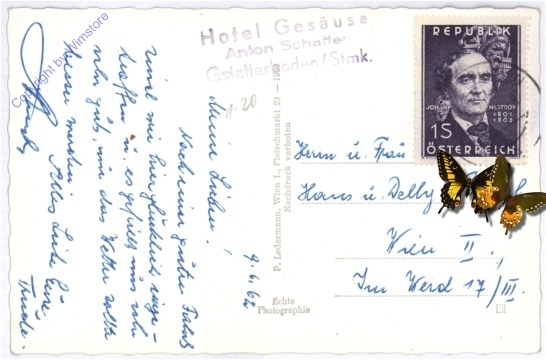 Hotel Gesäuse
Anton Schaffer
Gstatterboden / Stmk.
1.20
9.6.62
Meine Lieben!
Nach einer guten Fahrt
sind wir hier glücklich
u. es gefällt uns sehr
sehr gut, nur das Wetter
Alles Liebe Eure
Trude.
Copyright by Wimstore
P. Ledermann, Wien I., Fleischmarkt 20 - 1960
Nachdruck verboten
Echte
Photographie
REPUBLIK
JOHANN NESTROY
1801
1862
1S
ÖSTERREICH
Herrn u. Frau
Hans u. Delly
Wien II.
Im Werd 17/III.